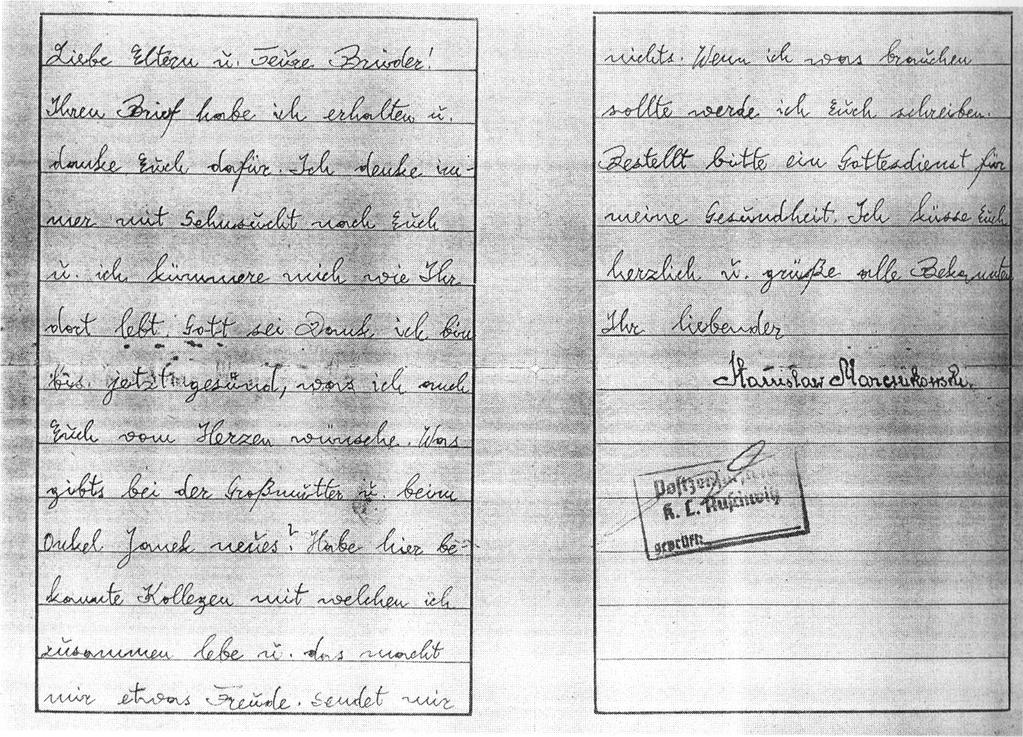 Liebe Eltern u. Teure Brüder!
Ihren Brief habe ich erhalten u.
danke Euch dafür. Ich denke im-
mer mit Sehnsucht nach Euch
u. ich kümmere mich wie Ihr
dort lebt. Gott sei Dank ich bin
bis jetzt gesund, was ich auch
Euch vom Herzen wünsche. Was
gibts bei der Großmutter u. beim
Onkel Janek neues? Habe hier be-
kannte Kollegen mit welchen ich
zusammen lebe u. das macht
mir etwas Freude. Sendet mir
nichts. Wenn ich was brauchen
sollte werde ich Euch schreiben.
Bestellt bitte ein Gottesdienst für
meine Gesundheit. Ich küsse Euch
herzlich u. grüße alle Bekannten
Ihr liebender
Stanisław
K. L. Auschwitz
geprüft: